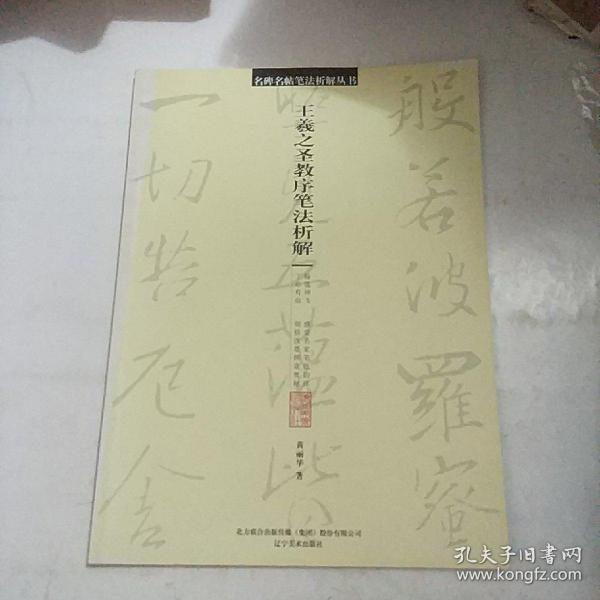 名碑名帖笔法析解丛书
王羲之圣教序笔法析解
黄丽华 著
般若波羅蜜
照見五蘊皆
一切苦厄舍
北方联合出版传媒（集团）股份有限公司
辽宁美术出版社
孔夫子旧书网
www.kongfz.com